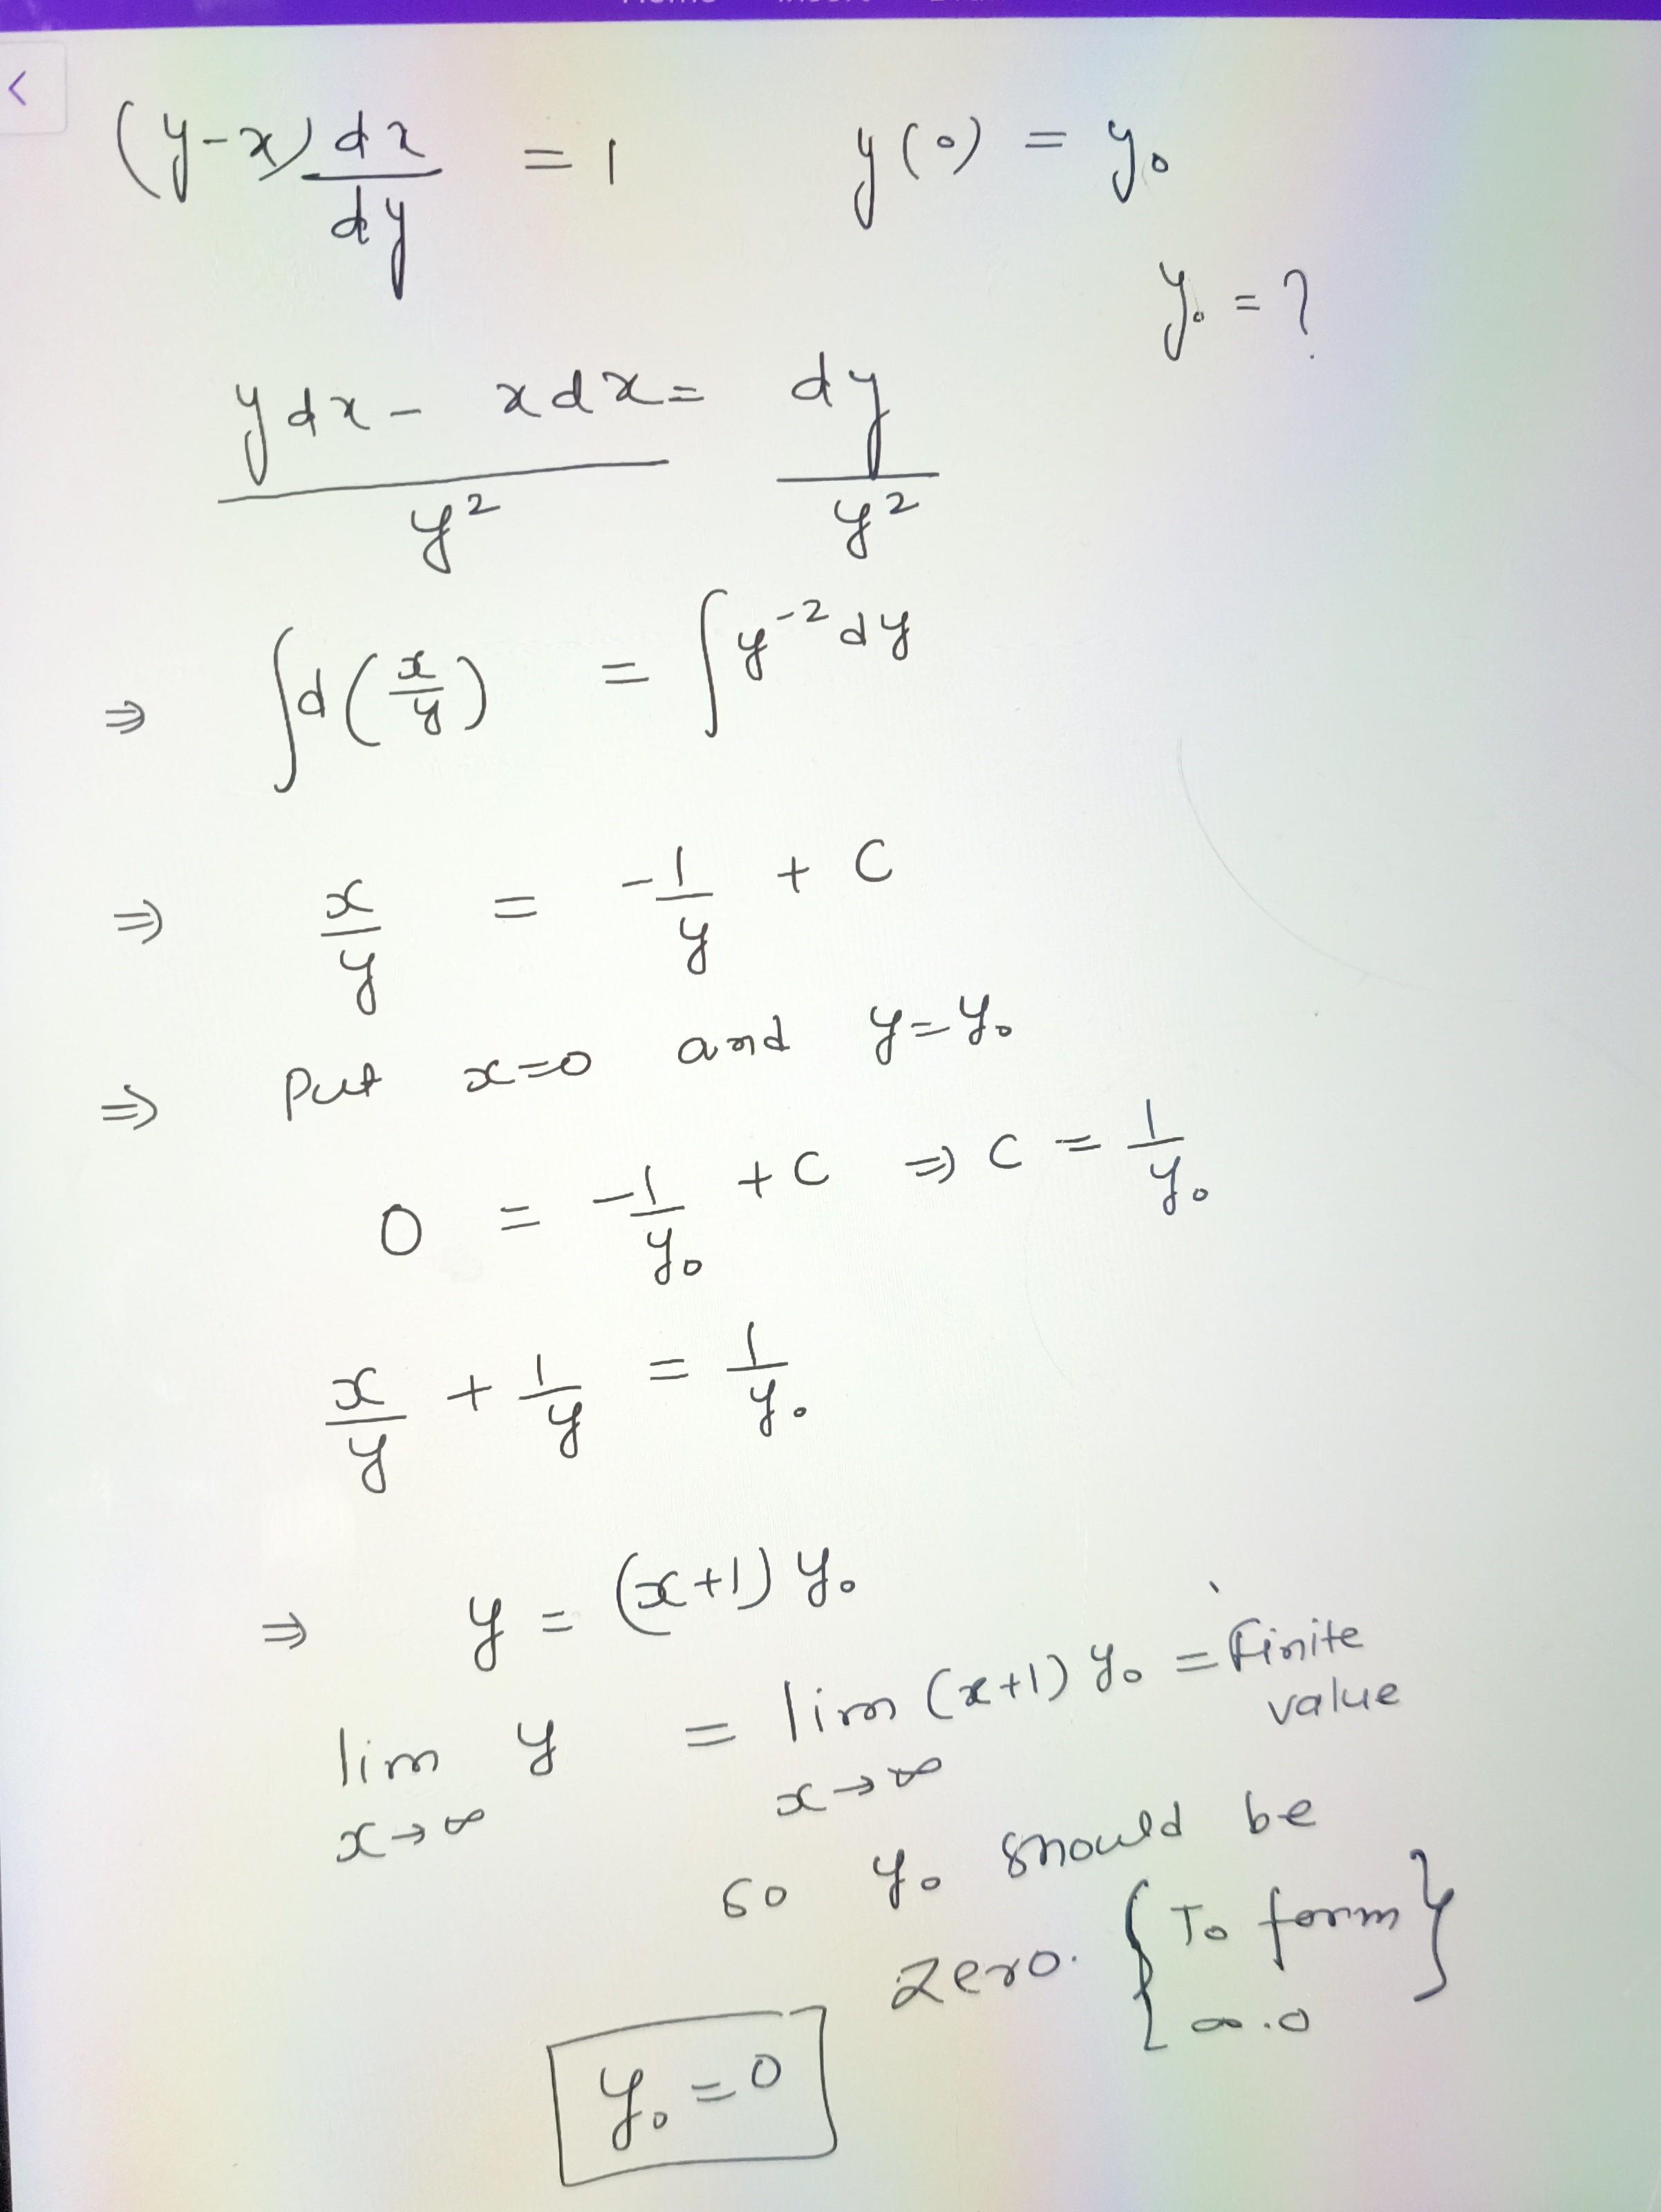 (y-x) dx/dy = 1 y(0) = y₀
y₀ = ?
(ydx - xdx)/y² = dy/y²
⇒ ∫d(x/y) = ∫y⁻²dy
⇒ x/y = -1/y + C
⇒ Put x=0 and y=y₀
0 = -1/y₀ + C ⇒ C = 1/y₀
x/y + 1/y = 1/y₀
⇒ y = (x+1) y₀
lim x→∞ y = lim x→∞ (x+1) y₀ = Finite value
so y₀ should be
zero. {To form ∞.0}
y₀ = 0